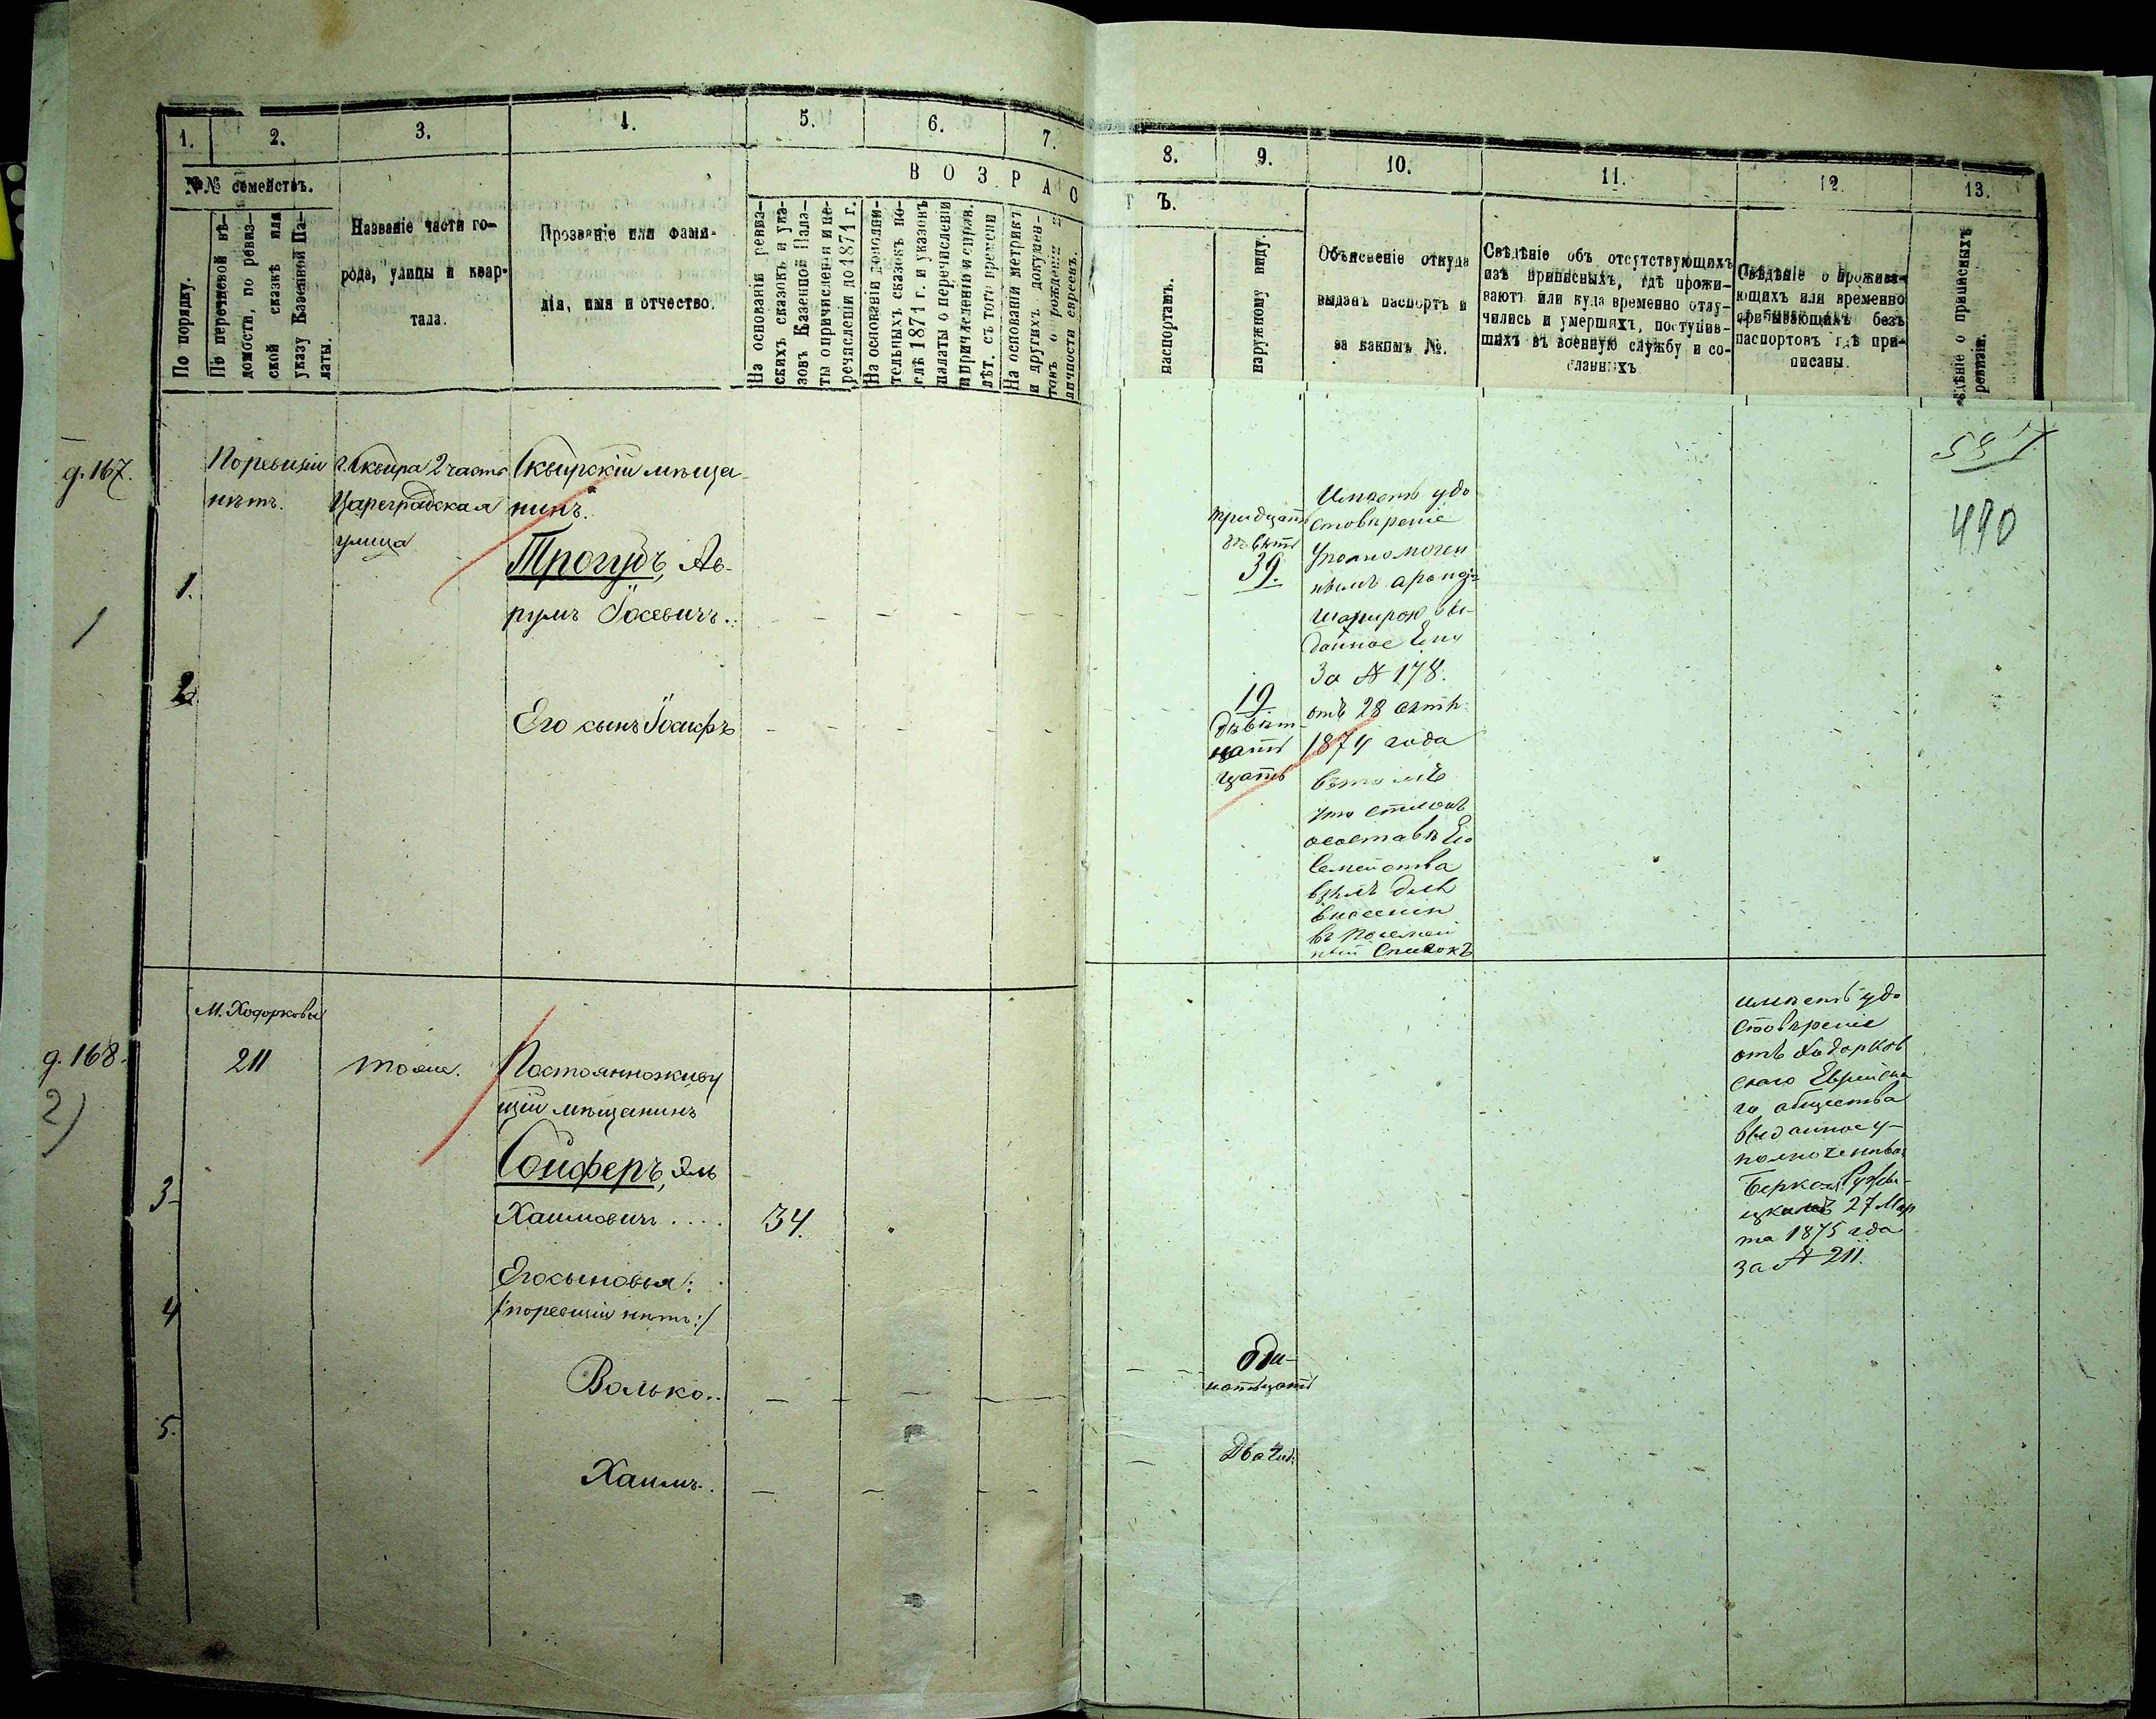 1.
2.
3.
4.
5.
6.
7.
8.
9.
10.
11.
12.
13.
№№ семействъ.
В О З Р А С
Т Ъ.
По порядку.
По перечневой вѣ-
домости, по ревиз-
ской сказкѣ или
указу Казенной Па-
латы.
Названіе части го-
рода, улицы и квар-
тала.
Прозваніе или фами-
лія, имя и отчество.
На основаніи ревиз-
скихъ сказокъ и ука-
зовъ Казенной Пала-
ты о причисленіи и пе-
речисленіи до 1871 г.
На основаніи дополни-
тельныхъ сказокъ по-
слѣ 1871 г. и указовъ
палаты о перечисленіи
и причисленіи и справ.
лѣт. съ того времени
На основаніи метрикъ
и другихъ докумен-
товъ о рожденіи и
личности евреевъ.
паспортамъ.
наружному виду.
Объясненіе откуда
выданъ паспортъ и
за какимъ №.
Свѣдѣніе объ отсутствующихъ
изъ приписныхъ, гдѣ прожи-
ваютъ или куда временно отлу-
чились и умершихъ, поступив-
шихъ въ военную службу и со-
сланныхъ
Свѣдѣніе о прожива-
ющихъ или временно
прибывающихъ безъ
паспортовъ гдѣ при-
писаны.
ѣдѣніе о приписныхъ
ревизіи.
д. 167.
По ревизіи
нѣтъ.
г. Сквира 2 часть
Цареградская
улица
Сквирскій мѣща
нинъ.
1.
Трогудъ, Ав-
румъ Іосевичъ..
тридцать
девять
39.
Имѣетъ удо
стовѣреніе
Уполномочен
нымъ
Шапирою вы-
данное Ему
За № 178.
отъ 28 октяб.
1874 года
въ томъ
что
о составѣ Его
Семейства
взялъ для
внесенія
въ посемей
ный Списокъ
490
1
2.
Его сынъ Іосифъ
19
девят-
цать
М. Ходорковъ
д. 168.
211
тоже.
Постоянноживу
щій мѣщанинъ
2)
3
Сойферъ, Эль
Хаимовичъ....
34.
Его сыновья:
4
/:по ревизіи нѣтъ:/
Волько..
Оди-
натцать
5.
Хаимъ..
Два
имѣетъ удо
стовѣреніе
отъ Ходорков
скаго Еврейска
го общества
выданное у-
полномоченным
Беркомъ
27 Мар
та 1875 года
за № 211.